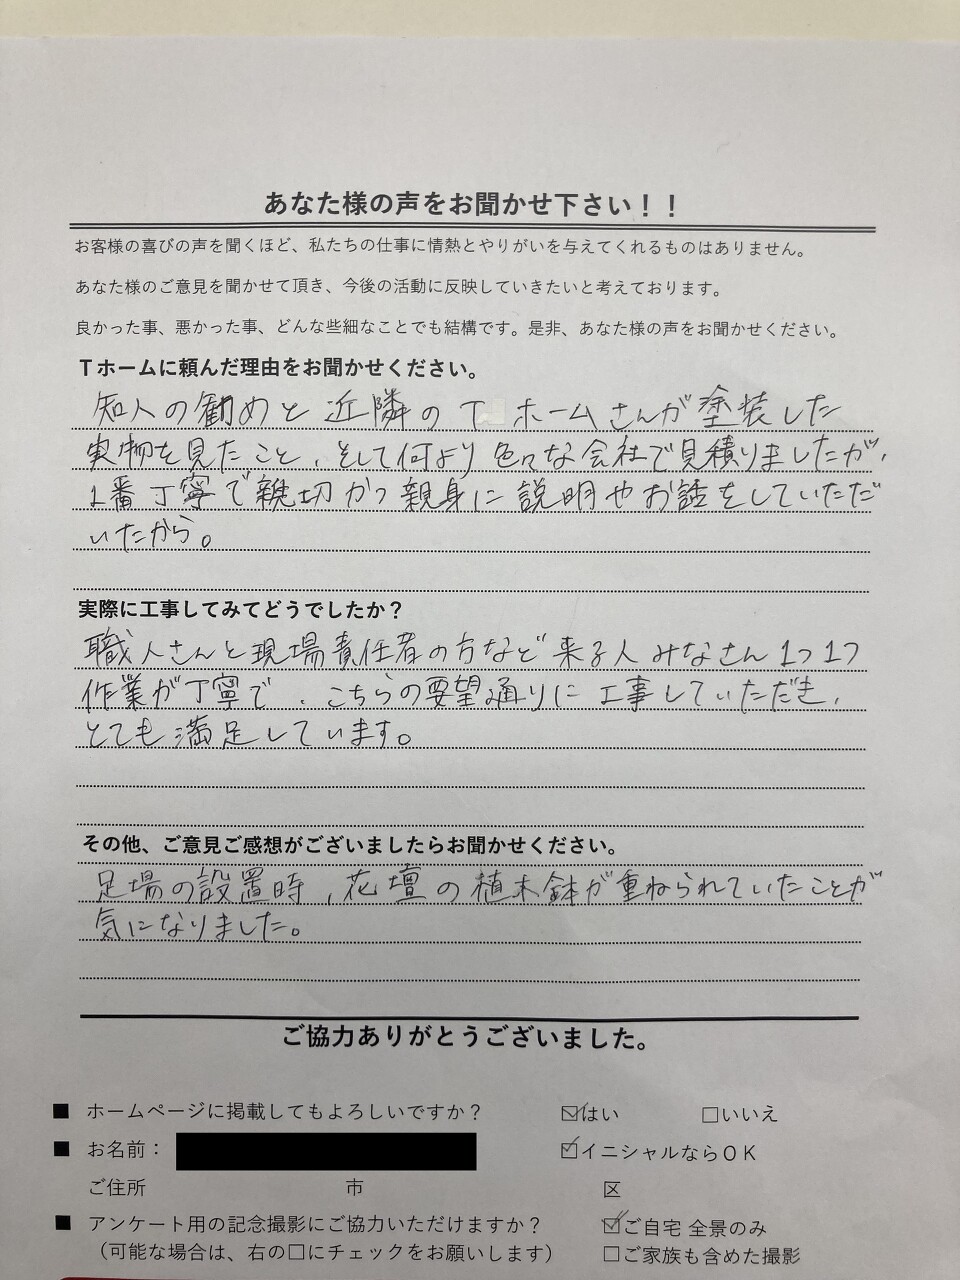 あなた様の声をお聞かせ下さい！！
お客様の喜びの声を聞くほど、私たちの仕事に情熱とやりがいを与えてくれるものはありません。
あなた様のご意見を聞かせて頂き、今後の活動に反映していきたいと考えております。
良かった事、悪かった事、どんな些細なことでも結構です。是非、あなた様の声をお聞かせください。
Ｔホームに頼んだ理由をお聞かせください。
知人の勧めと近隣のTホームさんが塗装した
実物を見たこと、そして何より色々な会社で見積りましたが、
1番丁寧で親切かつ親身に説明やお話をしていただ
いたから。
実際に工事してみてどうでしたか？
職人さんと現場責任者の方など来る人みなさん1つ1つ
作業が丁寧で、こちらの要望通りに工事していただき、
とても満足しています。
その他、ご意見ご感想がございましたらお聞かせください。
足場の設置時、花壇の植木鉢が重ねられていたことが
気になりました。
ご協力ありがとうございました。
■ ホームページに掲載してもよろしいですか？ ☑はい □いいえ
■ お名前： ☑イニシャルならＯＫ
ご住所 市 区
■ アンケート用の記念撮影にご協力いただけますか？ ☑ご自宅 全景のみ
（可能な場合は、右の□にチェックをお願いします） □ご家族も含めた撮影